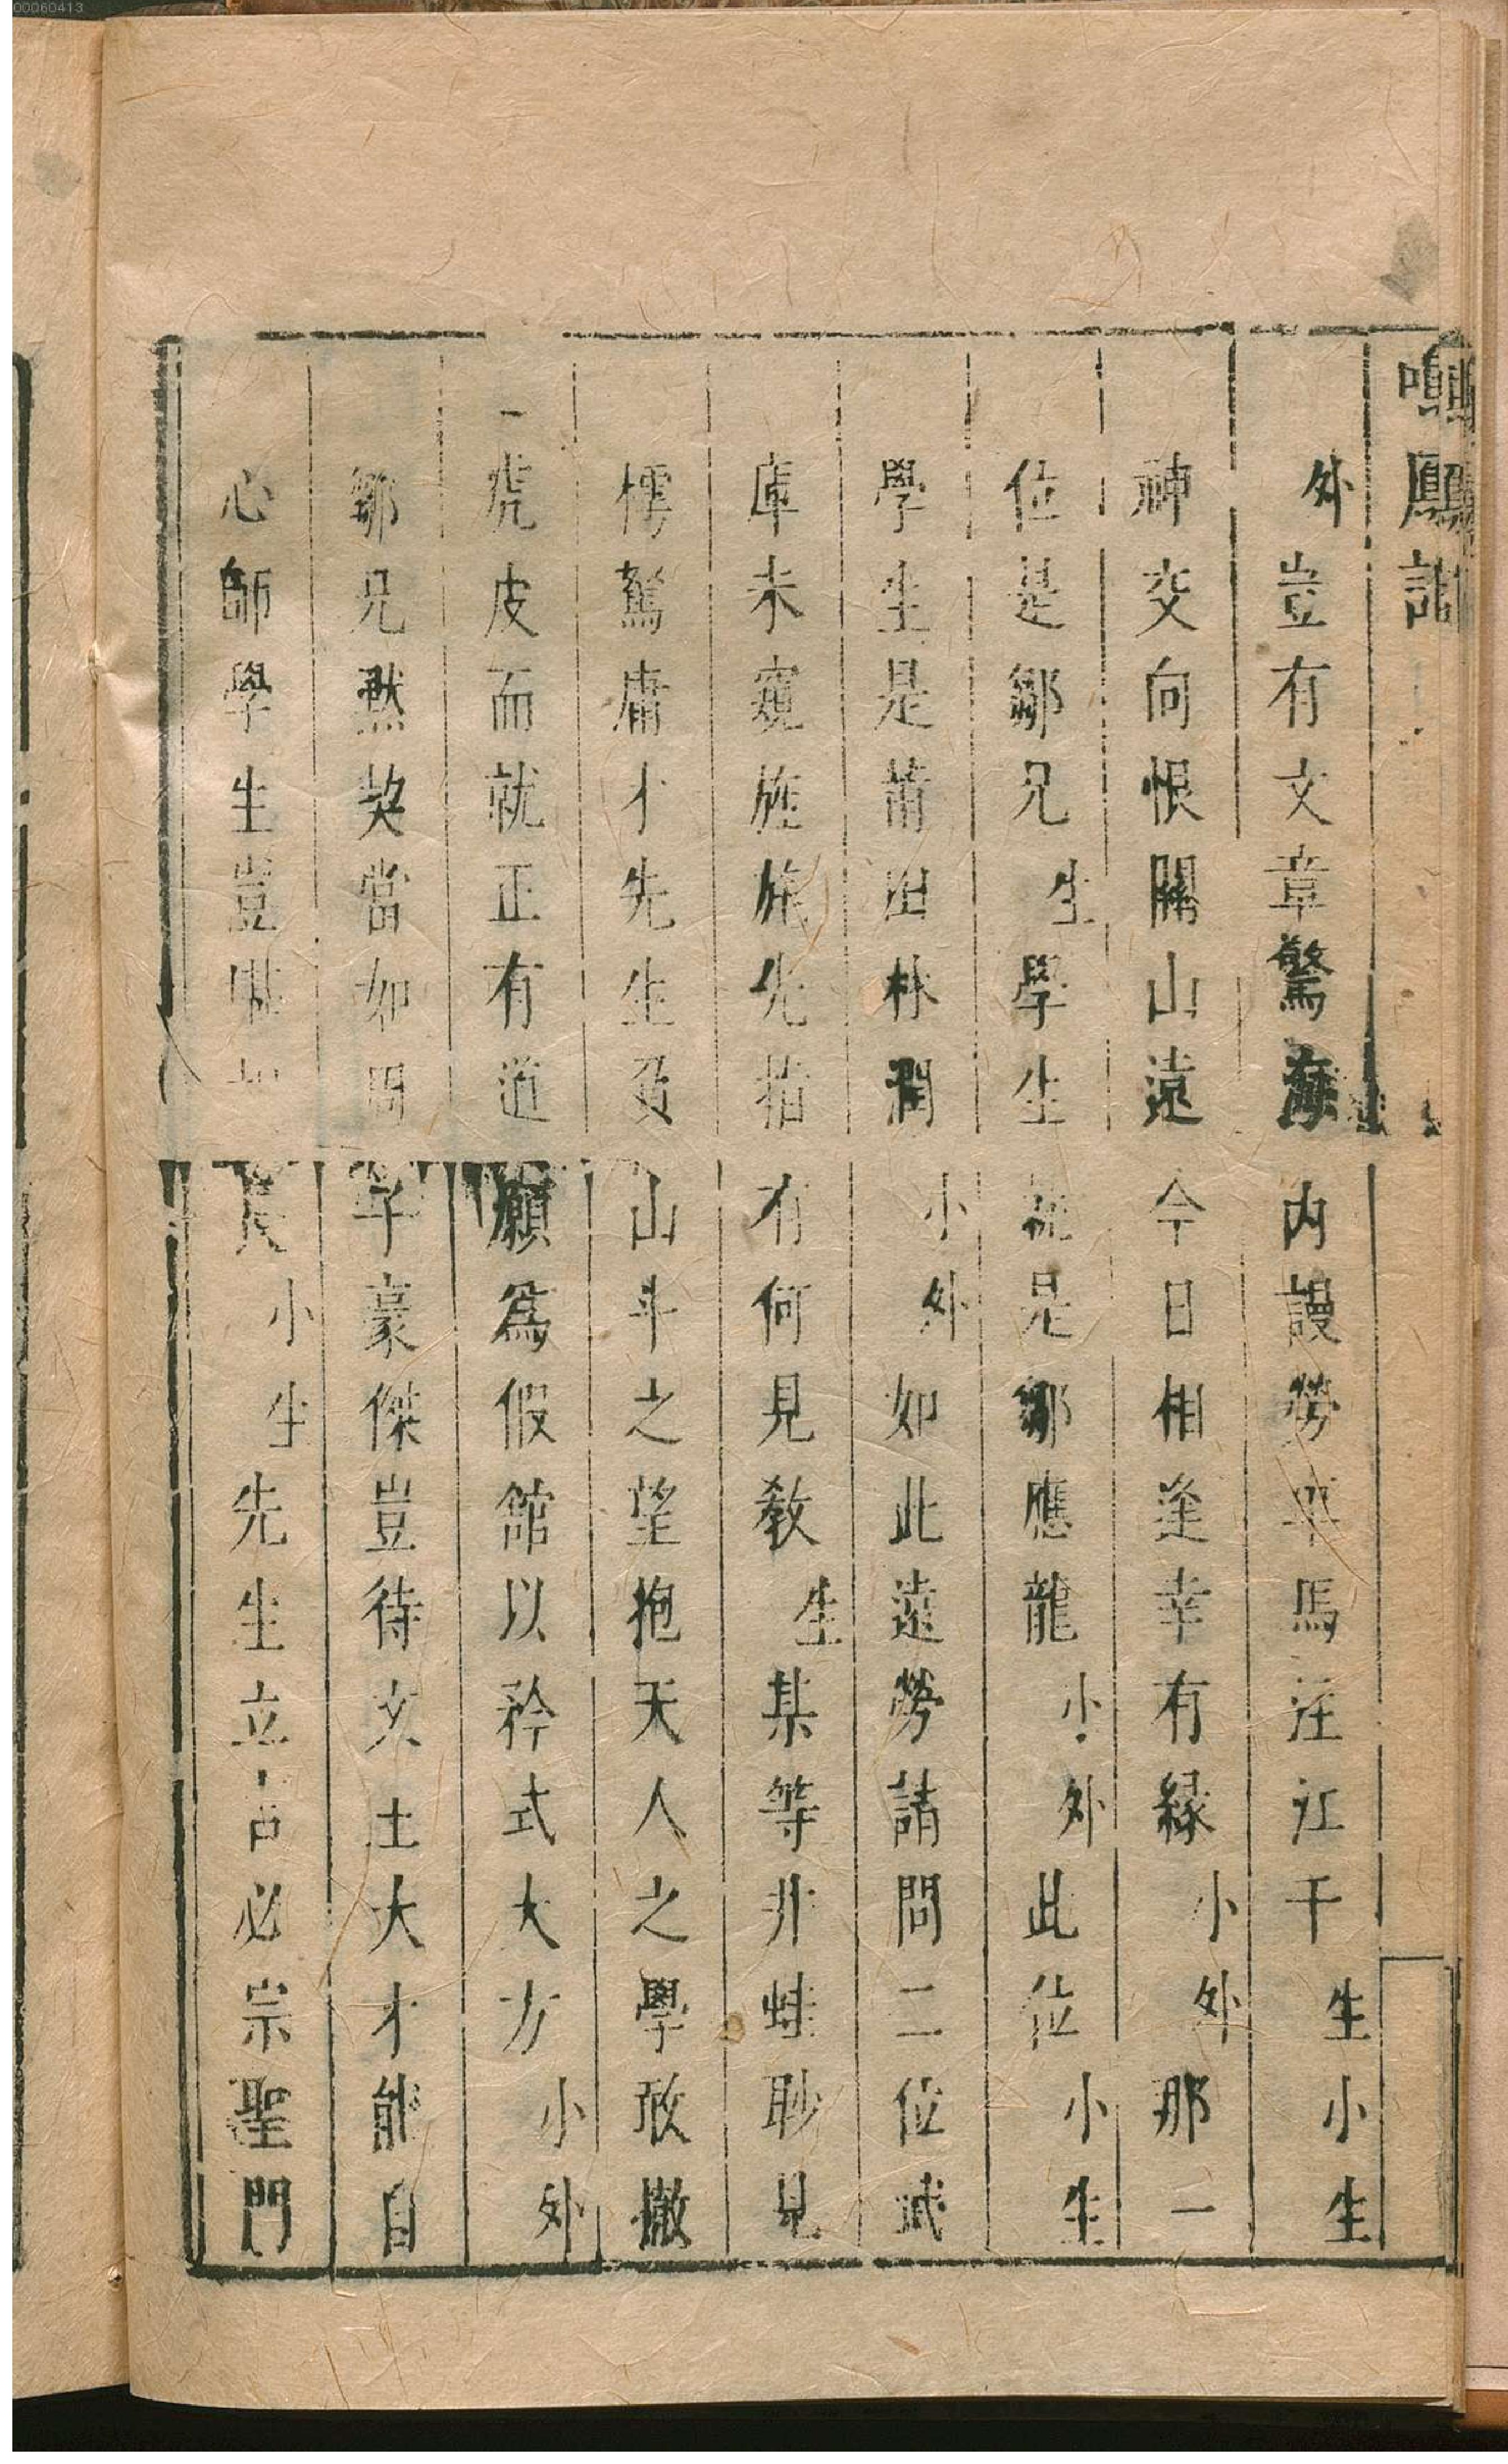 00060413
鳴鳳記
外豈有文章驚海内謾勞車馬注江干生小生
神交向恨關山遠今日相逢幸有緣小外那一
位是鄒兄生學生就是鄒應龍小外此位小生
學生是莆田林潤小外如此遠勞請問二位武
庫未窺旌旄先指有何見教生某等井蛙眇見
樗駑庸才先生負山斗之望抱天人之學敢撤
虎皮而就正有道願爲假館以矜式大方小外
鄒兄㸃契當如周子豪傑豈待文士大才能自
心師學生豈敢長小生先生立言必宗聖門